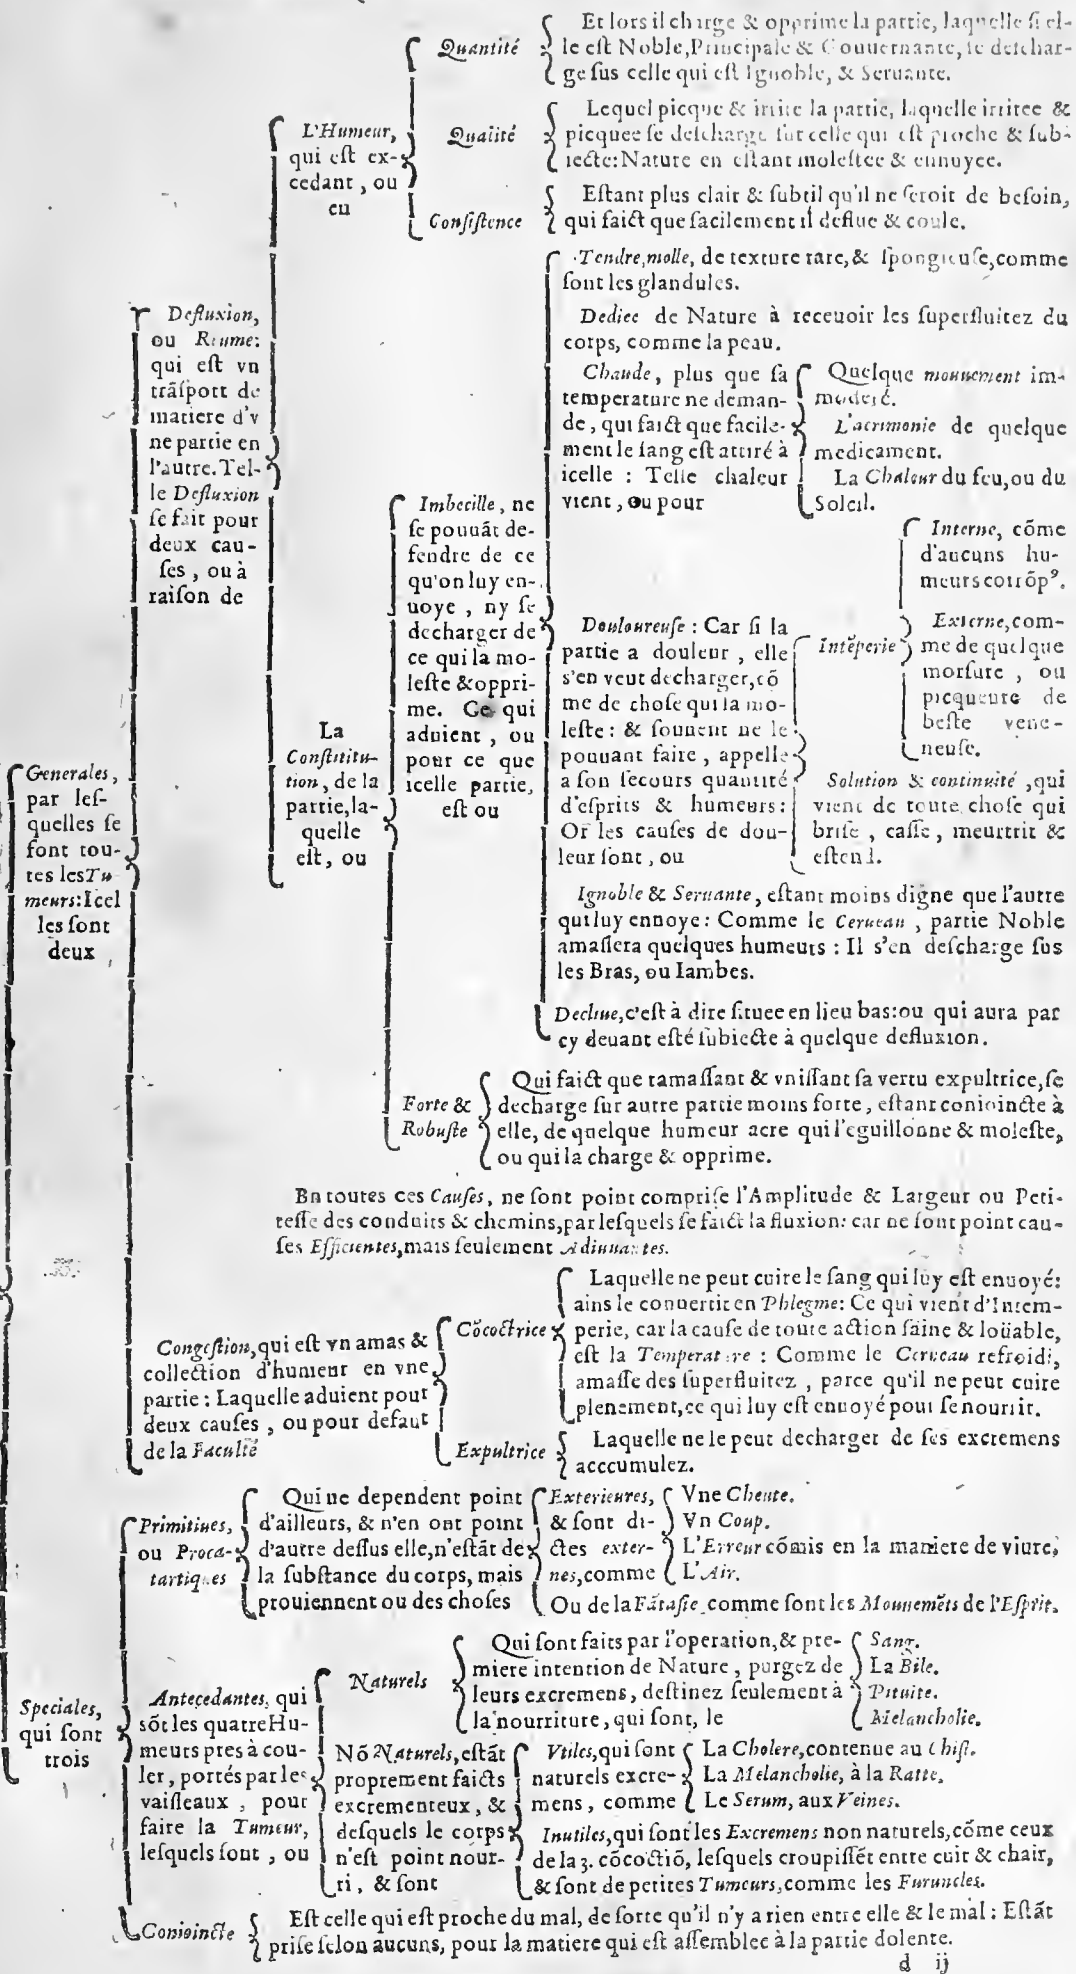 Generales,
par lesquelles
se
font toutes
les Tumeurs:
Icelles
sont
deux
Defluxion,
ou Reume:
qui est vn
trãsport de
matiere d'v
ne partie en
l'autre. Tel-
le Defluxion
se fait pour
deux cau-
ses, ou à
raison de
L'Humeur,
qui est ex-
cedant, ou
en
Quantité
Et lors il charge & opprime la partie, laquelle si el-
le est Noble, Principale & Gouuernante, se deschar-
ge sus celle qui est Ignoble, & Seruante.
Qualité
Lequel picque & irrite la partie, laquelle irritee &
picquee se descharge sur celle qui est proche & sub-
iecte: Nature en estant molestee & ennuyee.
Consistence
Estant plus clair & subtil qu'il ne seroit de besoin,
qui faict que facilement il deflue & coule.
La
Constitu-
tion, de la
partie, la-
quelle
est, ou
Imbecille, ne
se pouuãt de-
fendre de ce
qu'on luy en-
uoye, ny se
decharger de
ce qui la mo-
leste & oppri-
me. Ce qui
aduient, ou
pour ce que
icelle partie,
est ou
Tendre, molle, de texture rare, & spongieuse, comme
sont les glandules.
Dediee de Nature à receuoir les superfluitez du
corps, comme la peau.
Chaude, plus que sa
temperature ne deman-
de, qui faict que facile-
ment le sang est attiré à
icelle : Telle chaleur
vient, ou pour
Quelque mouuement im-
moderé.
L'acrimonie de quelque
medicament.
La Chaleur du feu, ou du
Soleil.
Douloureuse : Car si la
partie a douleur, elle
s'en veut decharger, cõ
me de chose qui la mo-
leste : & souuent ne le
pouuant faire, appelle
a son secours quantité
d'esprits & humeurs :
Or les causes de dou-
leur sont, ou
Intẽperie
Interne, cõme
d'aucuns hu-
meurs corrõpꝰ.
Externe, com-
me de quelque
morsure, ou
picqueure de
beste vene-
neuse.
Solution & continuité, qui
vient de toute chose qui
brise, casse, meurtrit &
estend.
Ignoble & Seruante, estant moins digne que l'autre
qui luy enuoye : Comme le Cerueau, partie Noble
amassera quelques humeurs : Il s'en descharge sus
les Bras, ou Iambes.
Decliue, c'est à dire situee en lieu bas: ou qui aura par
cy deuant esté subiecte à quelque defluxion.
Forte &
Robuste
Qui faict que ramassant & vnissant sa vertu expultrice, se
decharge sur autre partie moins forte, estant conioincte à
elle, de quelque humeur acre qui l'eguillonne & moleste,
ou qui la charge & opprime.
En toutes ces Causes, ne sont point comprise l'Amplitude & Largeur ou Peti-
tesse des conduits & chemins, par lesquels se faict la fluxion: car ne sont point cau-
ses Efficientes, mais seulement Adiuuantes.
Congestion, qui est vn amas &
collection d'humeur en vne
partie : Laquelle aduient pour
deux causes, ou pour defaut
de la Faculté
Cõcoctrice
Laquelle ne peut cuire le sang qui luy est enuoyé:
ains le conuertit en Phlegme: Ce qui vient d'Intem-
perie, car la cause de toute action saine & loüable,
est la Temperature : Comme le Cerueau refroidi,
amasse des superfluitez, parce qu'il ne peut cuire
plenement, ce qui luy est enuoyé pour se nourrir.
Expultrice
Laquelle ne le peut decharger de ses excremens
acccumulez.
Speciales,
qui sont
trois
Primitiues,
ou Proca-
tartiques
Qui ne dependent point
d'ailleurs, & n'en ont point
d'autre dessus elle, n'estãt de
la substance du corps, mais
prouiennent ou des choses
Exterieures,
& sont di-
ctes exter-
nes, comme
Vne Cheute.
Vn Coup.
L'Erreur cõmis en la maniere de viure;
L'Air.
Ou de la Fãtasie comme sont les Mouuemẽts de l'Esprit.
Antecedantes, qui
sõt les quatre Hu-
meurs pres à cou-
ler, portés par les
vaisseaux, pour
faire la Tumeur,
lesquels sont, ou
Naturels
Qui sont faits par l'operation, & pre-
miere intention de Nature, purgez de
leurs excremens, destinez seulement à
la nourriture, qui sont, le
Sang.
La Bile.
Pituite.
Melancholie.
Nõ Naturels, estãt
proprement faicts
excrementeux, &
desquels le corps
n'est point nour-
ri, & sont
Vtiles, qui sont
naturels excre-
mens, comme
La Cholere, contenue au Chist.
La Melancholie, à la Ratte.
Le Serum, aux Veines.
Inutiles, qui sont les Excremens non naturels, cõme ceux
de la 3. cõcoctiõ, lesquels croupissẽt entre cuir & chair,
& sont de petites Tumeurs, comme les Furuncles.
Conioincte
Est celle qui est proche du mal, de sorte qu'il n'y a rien entre elle & le mal : Estãt
prise selon aucuns, pour la matiere qui est assemblee à la partie dolente.
d ij